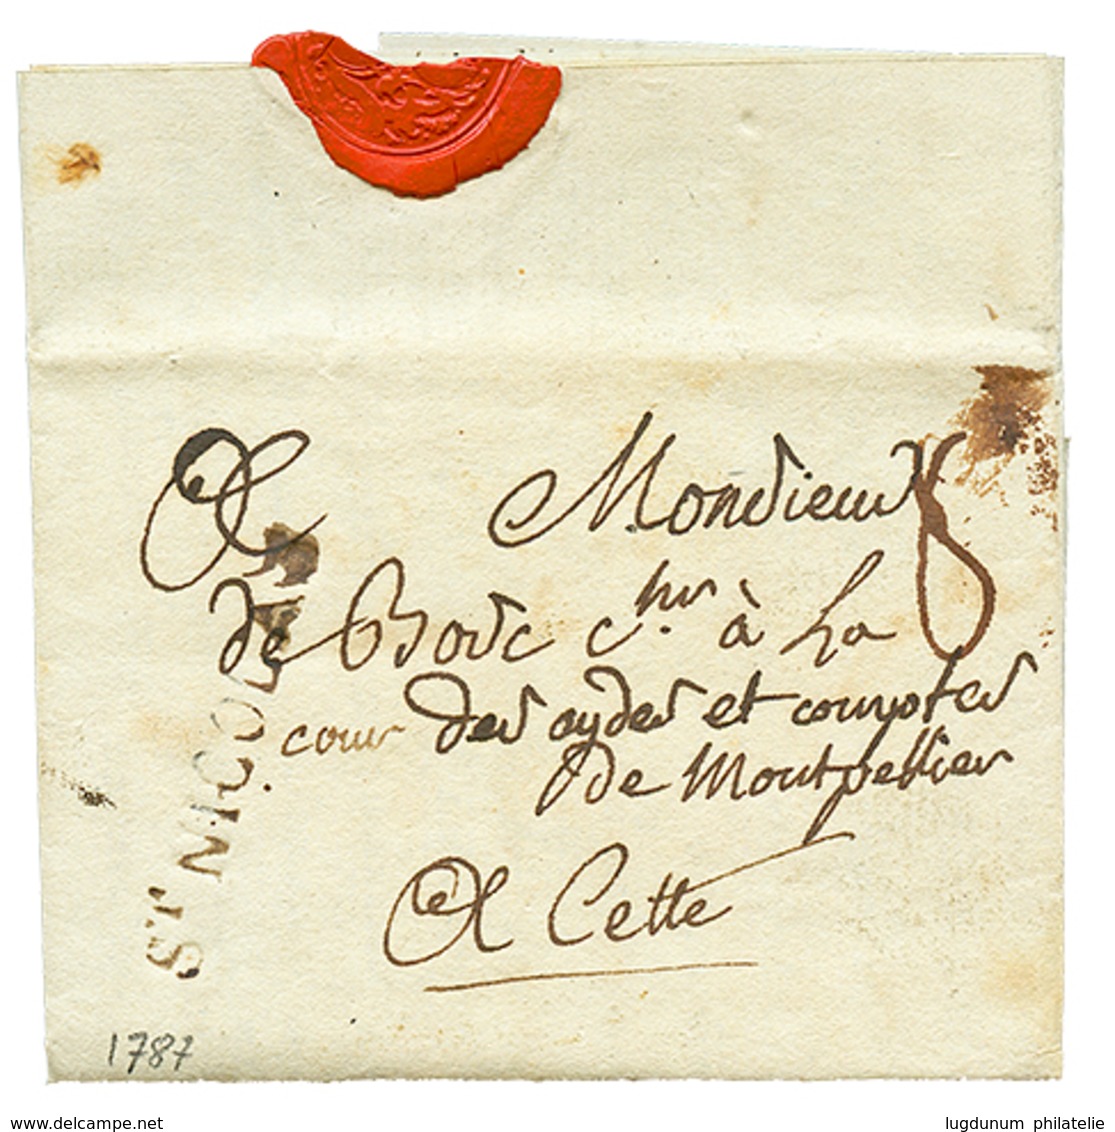 A Monsieur 8
de Bosc cher à La
cour des aydes et comptes
de Montpellier
A Cette
ST NICOLAS
1787
www.delcampe.net
lugdunum philatelie